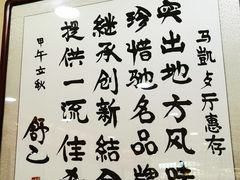 马凱歺厅惠存
突出地方风味
珍惜驰名品牌
继承创新结合
提供一流佳
甲午立秋
舒乙